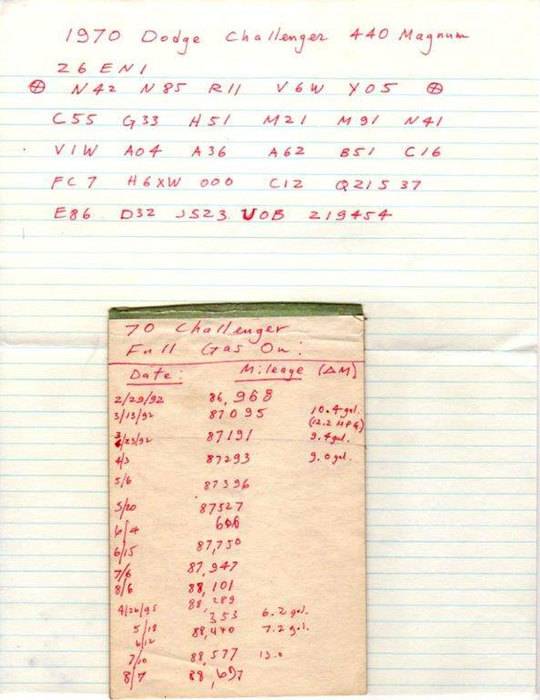 1970 Dodge Challenger 440 Magnum
26 EN1
⊕ N42 N85 R11 V6W Y05 ⊕
C55 G33 H51 M21 M91 N41
V1W A04 A36 A62 B51 C16
FC7 H6XW 000 C12 Q21537
E86 D32 JS23 U0B 219454
70 Challenger
Full Gas On:
Date: Mileage (ΔM)
2/29/92 86,968
3/13/92 87095 10.4 gal.
(12.2 MPG)
3/23/92 87191 9.4 gal.
4/3 87293 9.0 gal.
5/6 87396
5/20 87527
6/4
6/15 87,750
7/6 87,947
8/6 88,101
4/26/95 88,289
353 6.2 gal.
5/18 88,470 7.2 gal.
6/12
7/10 88,577
8/7 88,697